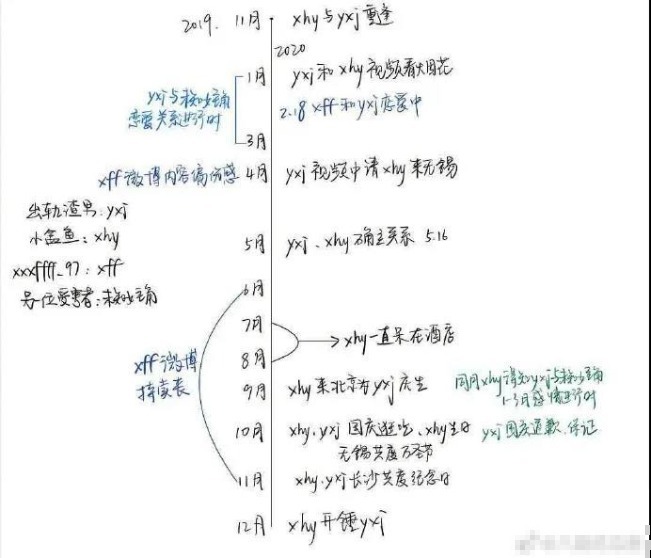 2019. 11月 xhy与yxj重逢
2020
1月 yxj和xhy视频看大雪花
yxj与
恋爱关系进行时
2.18 xff和yxj恋爱中
3月
xff微博内容偏伤感 4月 yxj视频中请xhy来无锡
出轨渣男:yxj
小金鱼:xhy
xxxffff_97:xff
另一位受害者:
5月 yxj、xhy确立关系 5.16
6月
7月
xhy一直呆在酒店
8月
xff微博
持续丧
9月 xhy来北京为yxj庆生
同月xhy得知yxj与
1-3月感情进行时
10月 xhy.yxj国庆逛吃、xhy生日
无锡共度万圣节
yxj国庆道歉、保证
11月 xhy.yxj长沙共度纪念日
12月 xhy开锤yxj